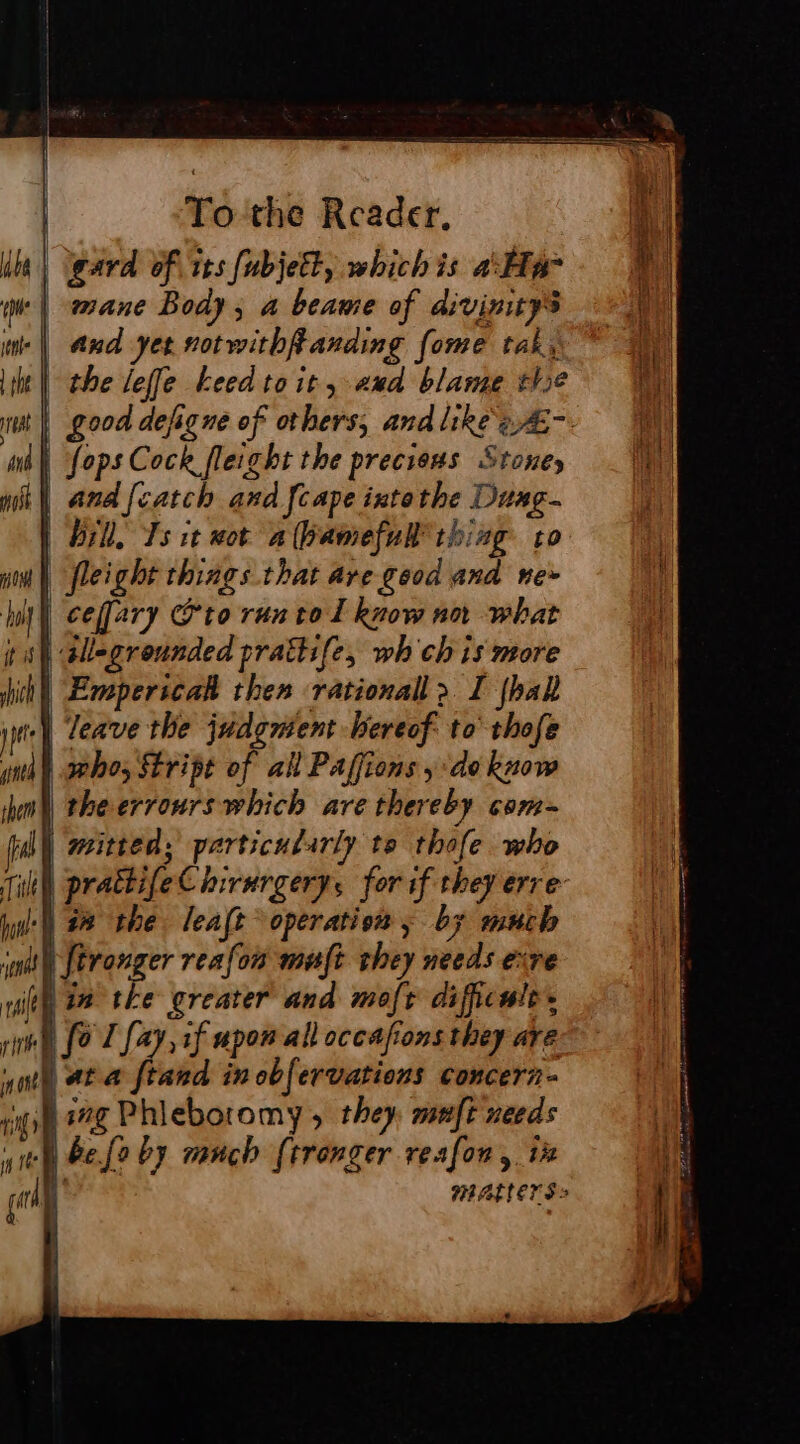 To the Reader.
gard of its ſubject, which is a Hu-
mane Body, a beame of divinity:
and yet notwithſtanding ſome take
the leſſe heed to it, and blame the
good deſigne of others; and like Æ-
ſops Cock ſleight the precious Stone,
and ſcatch and ſcape into the Dung-
hill. Is it not a ſhamefull thing to
ſleight things that are good and ne-
ceſſary & to run to I know not what
ill-grounded practiſe, wh ch is more
Empericall then rationall? I ſhall
leave the judgment hereof to thoſe
who, Stript of all Paſſions, do know
the errours which are thereby com-
mitted; particularly to thoſe who
practiſe Chirurgery, for if they erre
in the leaſt operation, by much
ſtronger reaſon muſt they needs erre
in the greater and moſt difficult:
ſo I ſay, if upon all occaſions they are
at a ſtand in obſervations concern-
ing Phlebotomy, they muſt needs
be ſo by much ſtronger reaſon, in
matters